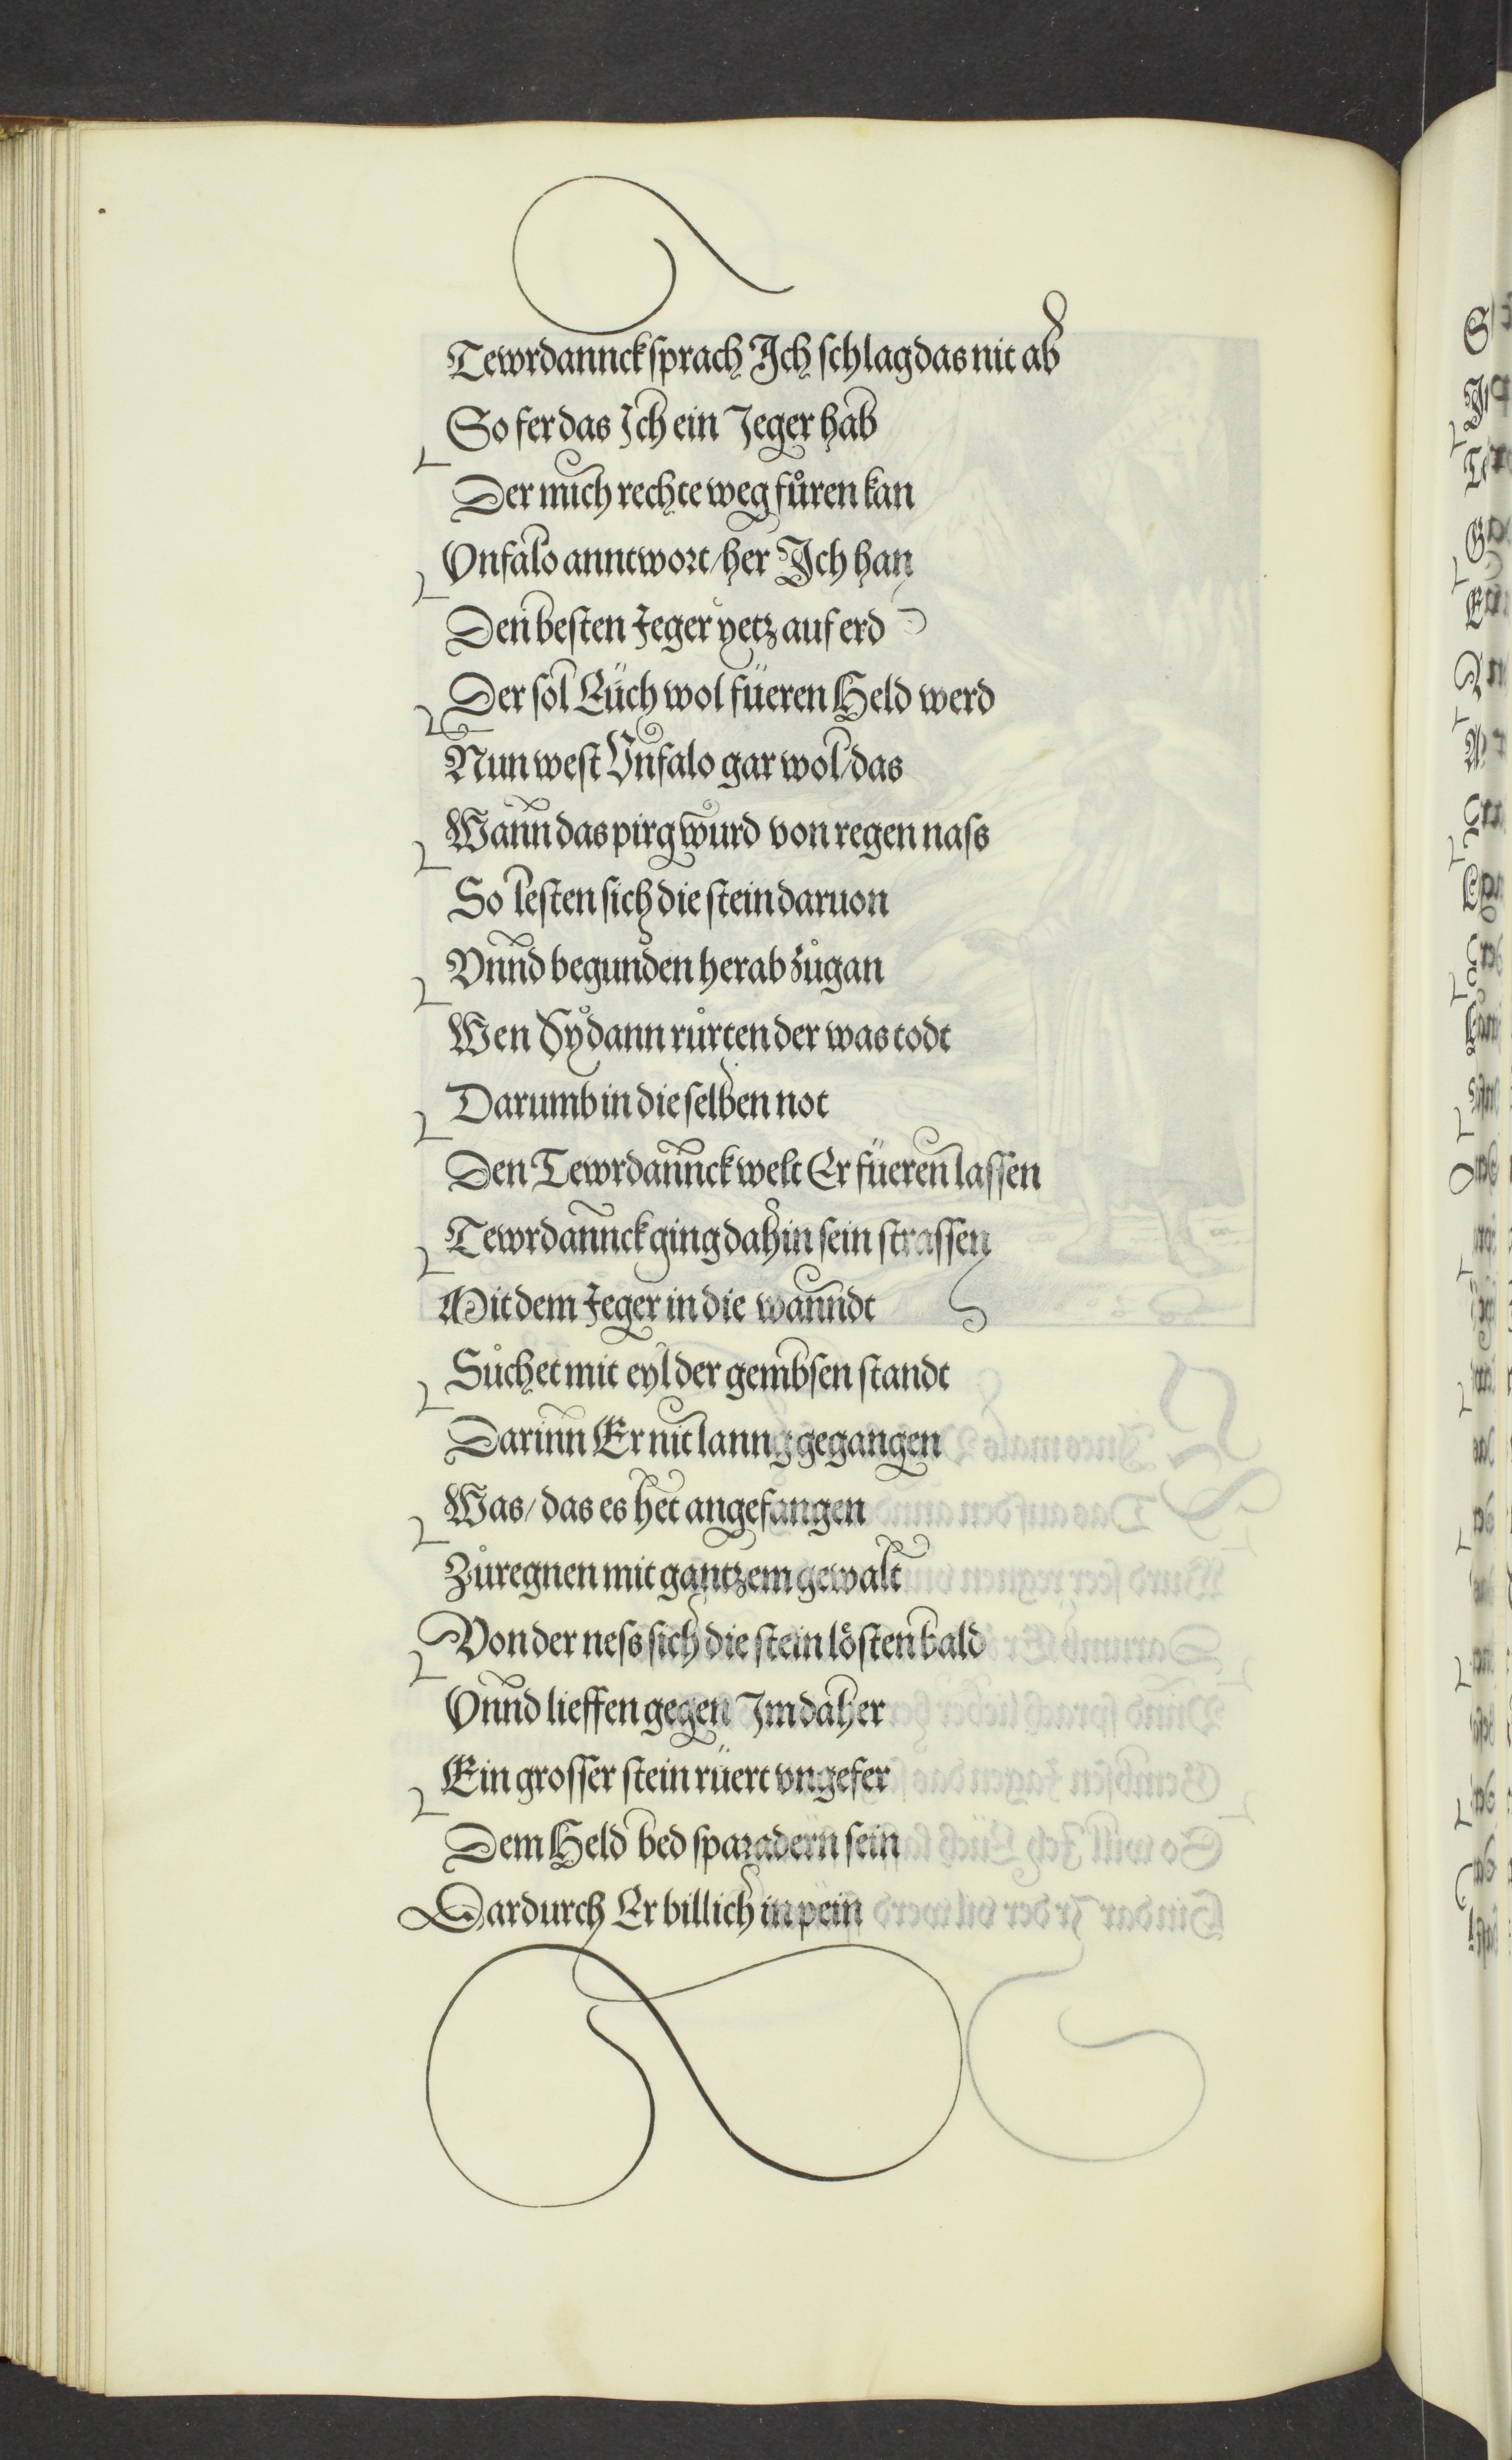 Tewrdannck sprach Ich schlag das nit ab
So fer das Ich ein Jeger hab
Der mich rechte weg fůren kan
Vnfalo anntwort/ her Ich han
Den besten Jeger yetz auf erd
Der sol Eüch wol füeren Held werd
Nun west Vnfalo gar wol/ das
Wann das pirg wurd von regen nass
So lesten sich die stein daruon
Vnnd begunden herab zůgan
Wen Sy dann růrten der was todt
Darumb in dieselben not
Den Tewrdannck welt Er füeren lassen
Tewrdannck ging dahin sein strassen
Mit dem Jeger in die wanndt
Sůchet mit eyl der gembsen standt
Darinn Er nit lanng gegangen
Was/ das es het angefangen
Zůregnen mit gantzem gewalt
Von der ness sich die stein lösten bald
Vnnd lieffen gegen Im daher
Ein grosser stein rüert vngefer
Dem Held bed sparadern sein
Dardurch Er billich in pein